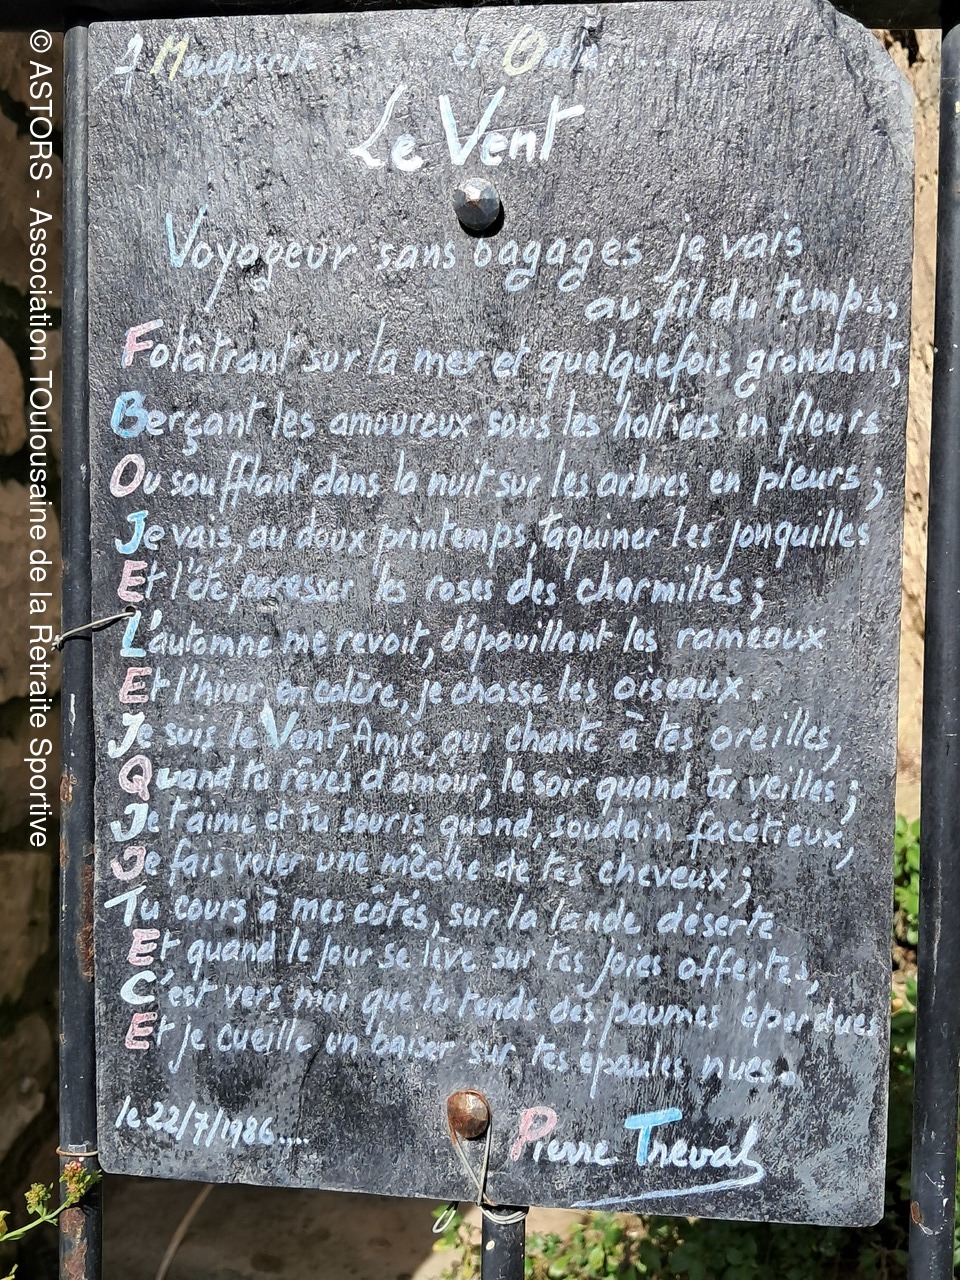 A Marguerite ........ et Odile......
Le Vent
Voyageur sans bagages je vais
au fil du temps,
Folâtrant sur la mer et quelquefois grondant,
Berçant les amoureux sous les halliers en fleurs
Ou soufflant dans la nuit sur les arbres en pleurs ;
Je vais, au doux printemps, taquiner les jonquilles
Et l'été, caresser les roses des charmilles ;
L'automne me revoit, dépouillant les rameaux
Et l'hiver en colère, je chasse les oiseaux.
Je suis le Vent, Amie, qui chante à tes oreilles,
Quand tu rêves d'amour, le soir quand tu veilles ;
Je t'aime et tu souris quand, soudain facétieux,
Je fais voler une mèche de tes cheveux ;
Tu cours à mes côtés, sur la lande déserte
Et quand le jour se lève sur tes joies offertes,
C'est vers moi que tu tends des paumes éperdues
Et je cueille un baiser sur tes épaules nues.
le 22/7/1986....
Pierre Treval
© ASTORS - Association TOulousaine de la Retraite Sportive